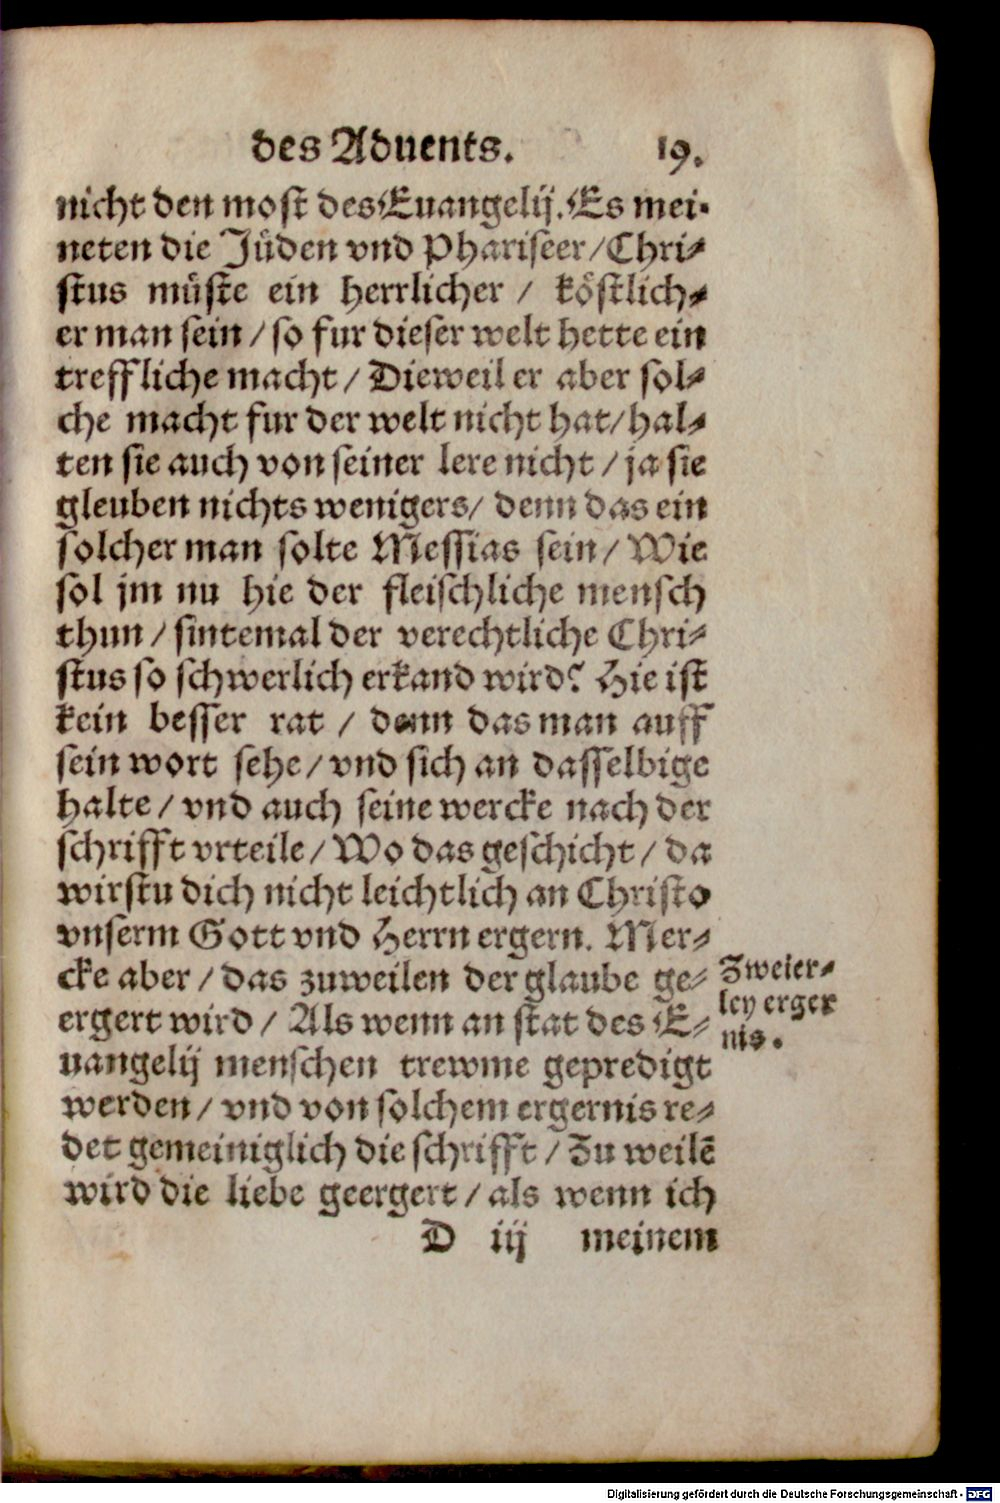 des Aduents. 19.
nicht den most des Euangelij. Es mei-
neten die Jüden vnd Phariseer / Chri-
stus müste ein herrlicher / köstlich-
er man sein / so fur dieser welt hette ein
treffliche macht / Dieweil er aber sol-
che macht fur der welt nicht hat / hal-
ten sie auch von seiner lere nicht / ja sie
gleuben nichts wenigers / denn das ein
solcher man solte Messias sein / Wie
sol jm nu hie der fleischliche mensch
thun / sintemal der verechtliche Chri-
stus so schwerlich erkand wird? Hie ist
kein besser rat / denn das man auff
sein wort sehe / vnd sich an dasselbige
halte / vnd auch seine wercke nach der
schrifft vrteile / Wo das geschicht / da
wirstu dich nicht leichtlich an Christo
vnserm Gott vnd Herrn ergern. Mer-
cke aber / das zuweilen der glaube ge-
ergert wird / Als wenn an stat des E-
uangelij menschen trewme gepredigt
werden / vnd von solchem ergernis re-
det gemeiniglich die schrifft / Zu weilē
wird die liebe geergert / als wenn ich
D iij meinem
Zweier-
ley erger
nis.
Digitalisierung gefördert durch die Deutsche Forschungsgemeinschaft - DFG